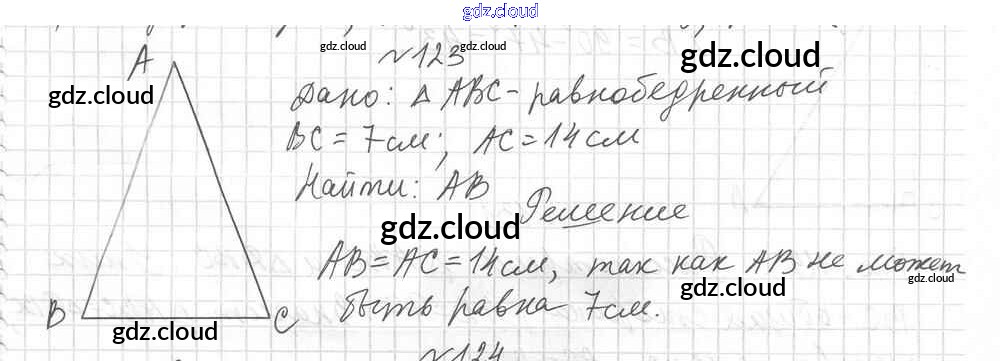 gdz.cloud
gdz.cloud
№123
gdz.cloud
gdz.cloud
A
gdz.cloud
Дано: Δ ABC - равнобедренный
BC = 7см; AC = 14 см
Найти: AB
Решение
gdz.cloud
AB = AC = 14 см, так как AB не может
gdz.cloud
gdz.cloud
gdz.cloud
быть равна 7 см.
B
C
gdz.cloud
№124